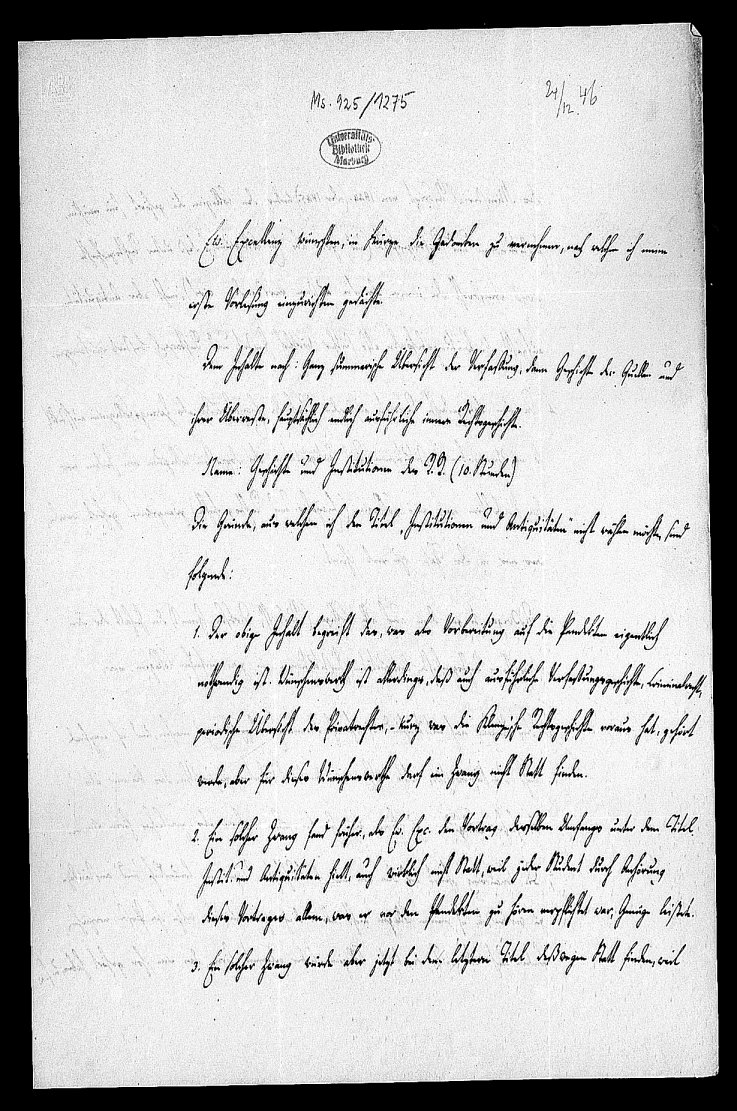 Ms. 925/1275
24/12. 46
Universitäts-
Bibliothek
Marburg
Ew. Excellenz wünschten, in Kürze die Gedanken zu vernehmen, nach welchen ich meine
erste Vorlesung einzurichten gedächte.
Dem Inhalte nach: Ganz summarische Übersicht der Verfassung, dann Geschichte der Quellen und
ihrer Überreste, hauptsächlich endlich ausführliche innere Rechtsgeschichte.
Name: Geschichte und Institutionen des R. R. (10. Stunden)
Die Gründe, aus welchen ich den Titel „Institutionen und Antiquitäten" nicht wählen möchte, sind
folgende:
1. Der obige Inhalt begreift das, was als Vorbereitung auf die Pandekten eigentlich
nothwendig ist. Wünschenswerth ist allerdings, daß auch ausführliche Verfassungsgeschichte, Criminalrecht,
periodische Übersicht des Privatrechtes, kurz was die Rechtsgeschichte voraus hat, gehört
werde, aber für dieses Wünschenswerthe darf ein Zwang nicht Statt finden.
2. Ein solcher Zwang fand früher, als Ew. Exc. den Vortrag desselben Umfangs unter dem Titel
Instit. und Antiquitäten hielt, auch wirklich nicht Statt, weil jeder Student durch Anhörung
dieses Vortrages allem, was er vor den Pandekten zu hören verpflichtet war, Genüge leistete.
3. Ein solcher Zwang würde aber jetzt bei dem letztern Titel deßwegen Statt finden, weil